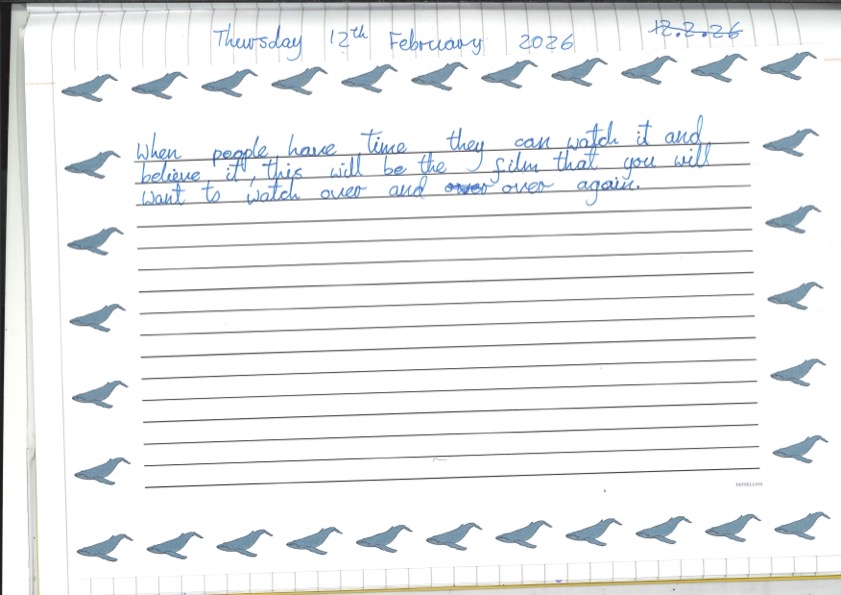 Thursday 12th February 2026 12.2.26
When people have time they can watch it and
believe it, this will be the film that you will
want to watch over and over over again.